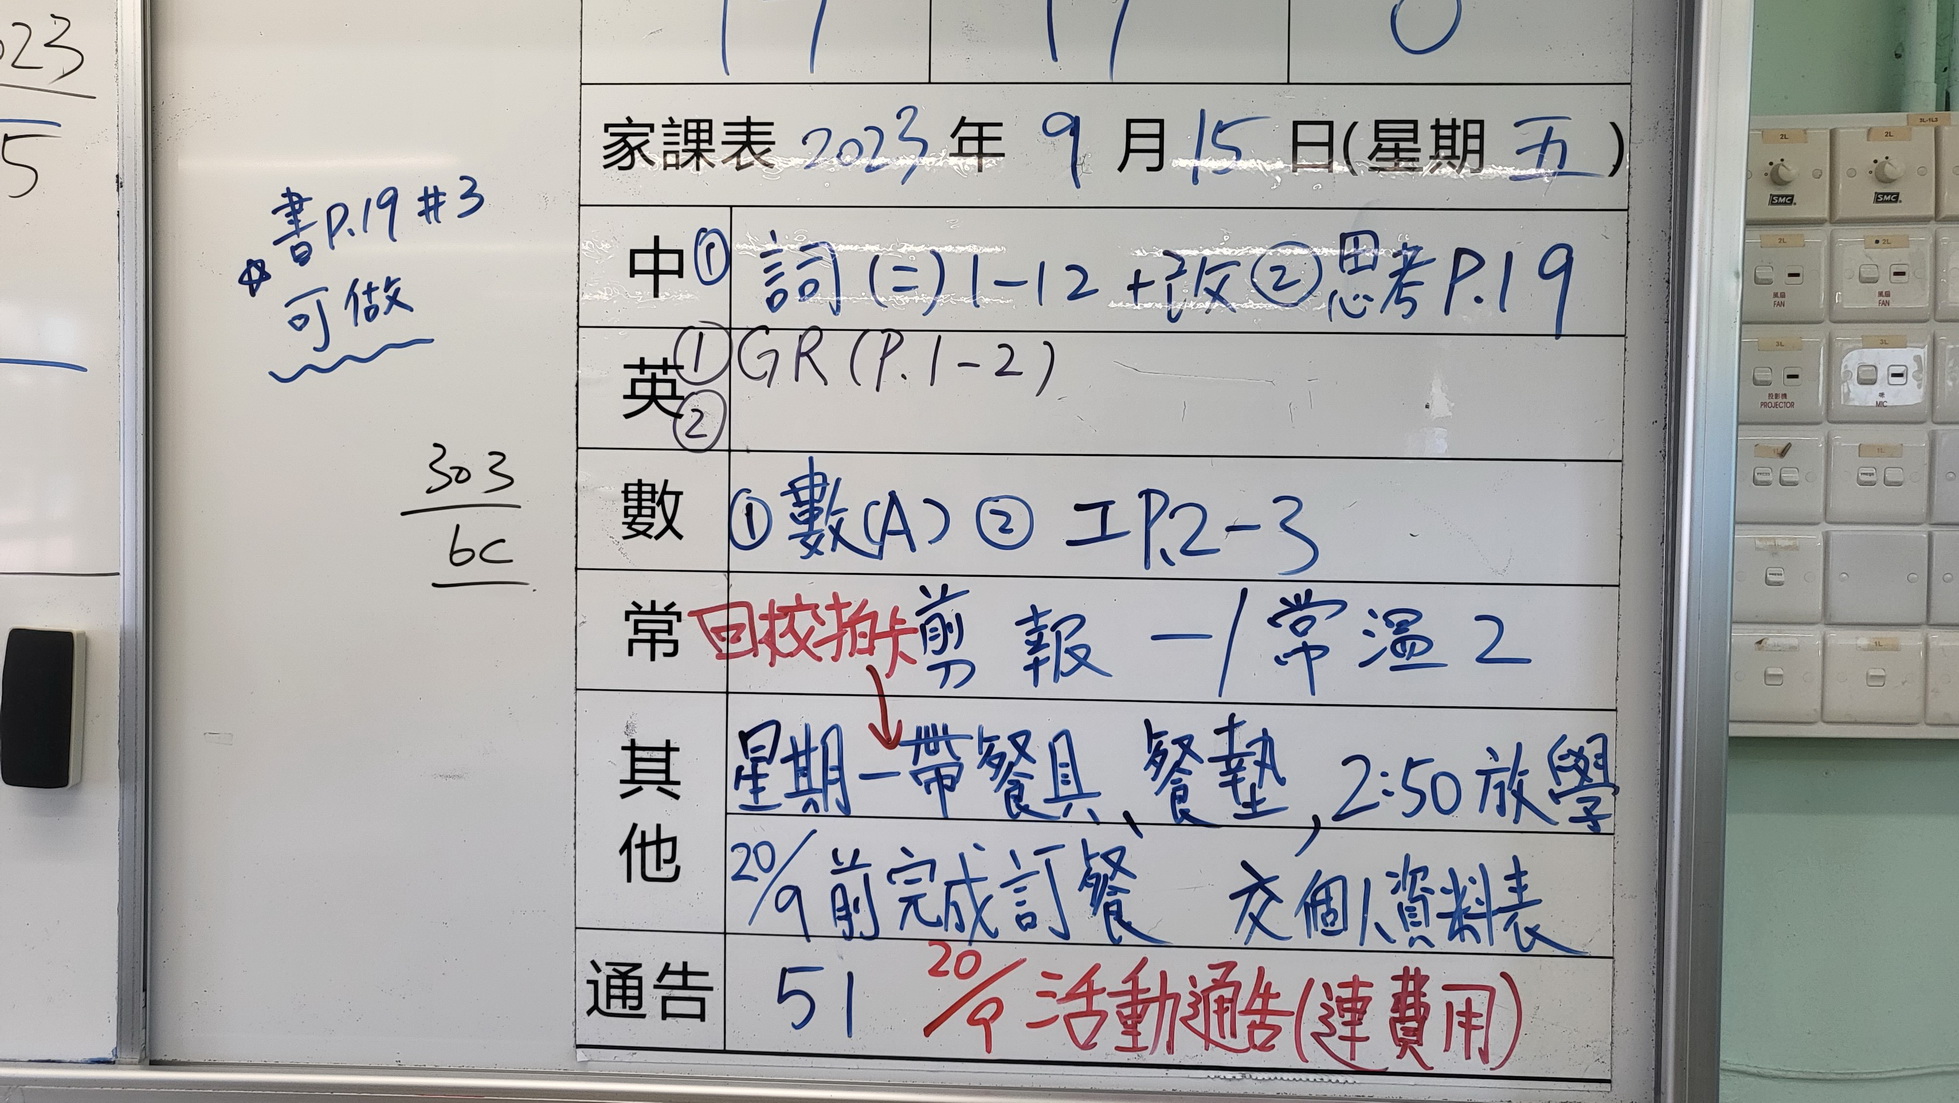 23
5
書P.19 #3
☆可做
303
6C
家課表 2023年 9月15日(星期五)
中 ① 詞(二)1-12 +改 ②思考P.19
英 ① GR(P.1-2)
②
數 ①數(A) ② 工P.2-3
常 回校拍卡 剪報一/常溫2
其他 星期一帶餐具、餐墊,2:50放學
20/9前完成訂餐 交個人資料表
通告 51 20/9 活動通告(連費用)
2L
2L
SMC
SMC
風扇
FAN
風扇
FAN
3L
3L
投影機
PROJECTOR
咪
MIC
1L
1L